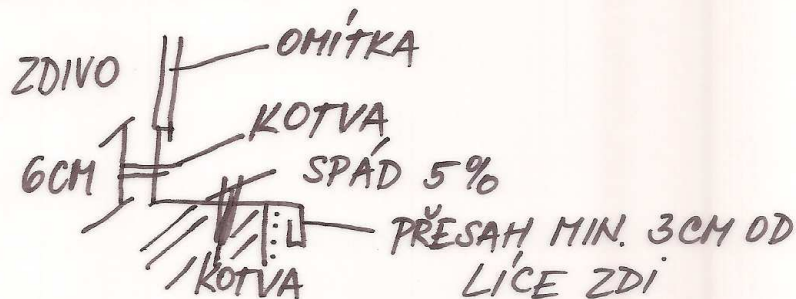 OMÍTKA
ZDIVO
KOTVA
6CM
SPÁD 5%
PŘESAH MIN. 3CM OD
LÍCE ZDI
KOTVA